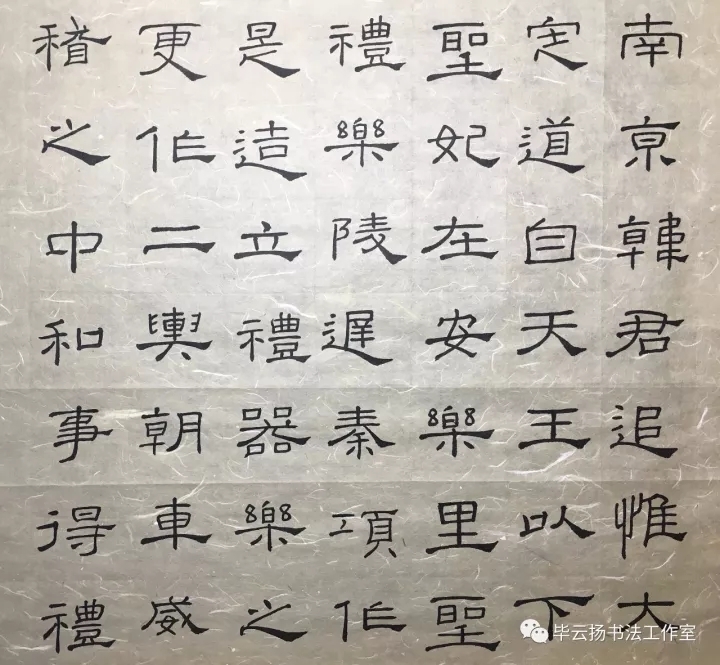 南京韓君追惟大
定道自天王以下
聖妃在安樂里聖
禮樂陵遲秦項作
是造立禮器樂之
更作二輿朝車威
稽之中和事得禮
毕云扬书法工作室